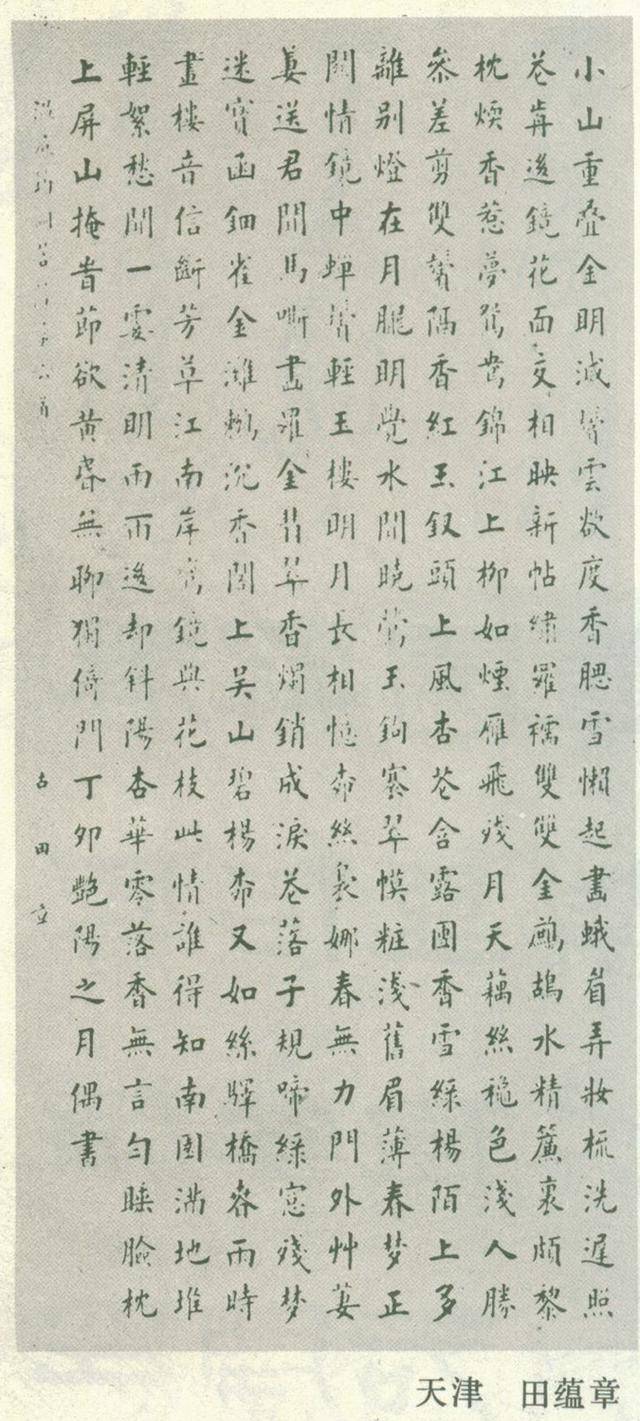 小山重叠金明滅鬢雲欲度香腮雪懶起畫蛾眉弄妝梳洗遲照
花歬後鏡花面交相映新帖繡羅襦雙雙金鷓鴣水精簾裏頗黎
枕煖香惹夢鴛鴦錦江上柳如煙雁飛殘月天藕絲秋色淺人勝
參差剪雙鬢隔香紅玉釵頭上風杏花含露團香雪綠楊陌上多
離別燈在月朧明覺水聞曉鶯玉鉤褰翠幙粧淺舊眉薄春梦正
關情鏡中蟬鬢輕玉樓明月長相憶柳絲裊娜春無力門外艸萋
萋送君聞馬嘶畫羅金翡翠香燭銷成淚花落子規啼綠窓殘梦
迷寶函鈿雀金鸂鶒沉香閣上吴山碧楊柳又如絲驛橋春雨時
畫樓音信斷芳草江南岸鸞鏡與花枝此情誰得知南園滿地堆
輕絮愁聞一霎清明雨雨後却斜陽杏華零落香無言勻睡臉枕
上屏山掩旹節欲黄昏無聊獨倚門丁卯艷陽之月偶書
古田立
天津 田蕴章